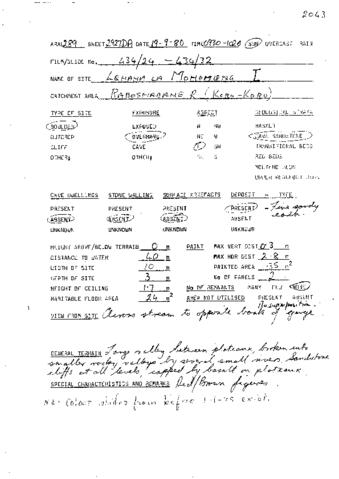 2043
ARAL 289 SHEET 2927DA DATE 19-9-80 TIME 0930-1020 SUN OVERCAST RAIN
FILM/SLIDE No. 434/24 - 434/32
NAME OF SITE I
CATCHMENT AREA
TYPE OF SITE EXPOSURE ASPECT GEOLOGICAL STRATA
BOULDER EXPOSED N NW BASALT
OVERHANG NE W CAVE SANDSTONE
CLIFF CAVE E SW TRANSITIONAL BEDS
OTHER: OTHER: SE S RED BEDS
MOLTENO BEDS
CAVE DWELLINGS STONE WALLING SURFACE ARTEFACTS DEPOSIT - TYPE.
PRESENT PRESENT PRESENT PRESENT - Fine sandy
ABSENT ABSENT ABSENT ABSENT
UNKNOWN UNKNOWN UNKNOWN UNKNOWN
HEIGHT ABOVE/BELOW TERRAIN 0 m PAINT MAX VERT DIST 0.3 m
DISTANCE TO WATER 40 m MAX HOR DIST 2.8 m
WIDTH OF SITE 10 m PAINTED AREA .35 m²
DEPTH OF SITE 3 m No OF PANELS 2
HEIGHT OF CEILING 1.7 m No OF REPAINTS MANY FEW NONE
HABITABLE FLOOR AREA 24 m² AREA NOT UTILISED PRESENT ABSENT
No superposition.
VIEW FROM SITE Across stream to opposite bank of gorge
GENERAL TERRAIN Long valley between plateaux, broken into
smaller rocky valleys by several small rivers. Sandstone
cliffs at all levels, capped by basalt on plateaux.
SPECIAL CHARACTERISTICS AND REMARKS Red/Brown figures.
NB: Colour slides from before